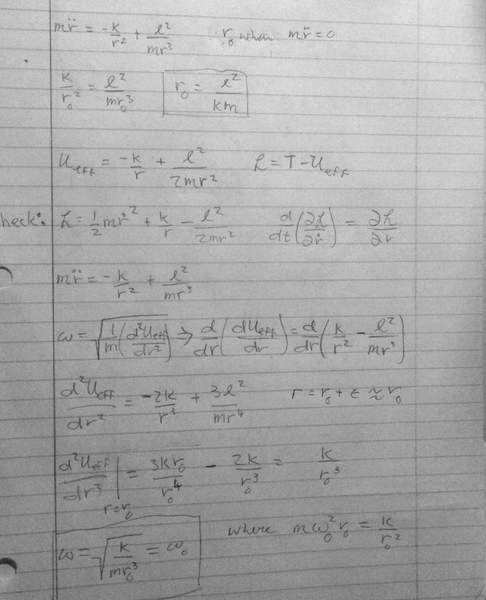 mr̈ = -k/r² + ℓ²/mr³    r₀ when mr̈ = 0
k/r₀² = ℓ²/mr₀³    r₀ = ℓ²/km
U_eff = -k/r + ℓ²/2mr²    ℒ = T - U_eff
heck: ℒ = ½mṙ² + k/r - ℓ²/2mr²    d/dt(∂ℒ/∂ṙ) = ∂ℒ/∂r
mr̈ = -k/r² + ℓ²/mr³
ω = √(1/m(d²U_eff/dr²)) → d/dr(dU_eff/dr) = d/dr(k/r² - ℓ²/mr³)
d²U_eff/dr² = -2k/r³ + 3ℓ²/mr⁴    r = r₀ + ε ≈ r₀
d²U_eff/dr³|r=r₀ = 3kr₀/r₀⁴ - 2k/r₀³ = k/r₀³
ω = √(k/mr₀³) = ω₀    where mω₀²r₀ = k/r₀²